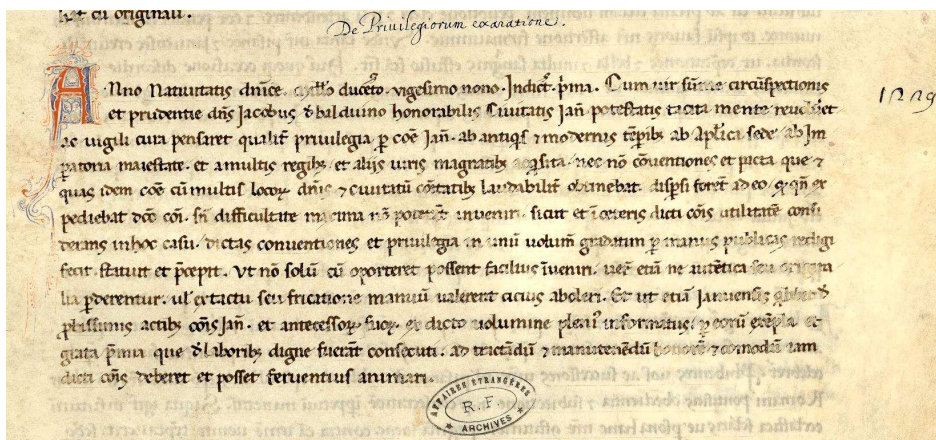 cu originali.
De Privilegiorum exaratione.
Anno Nativitatis dnice. millo duceto. vigesimo nono. Indict. pma. Cum vir sume circuspectionis
et prudentie dns Jacobus d balduino honorabilis Civitatis Jan potestatis tacita mente revolveret
ac vigili cura pensaret qualit privilegia p coe Jan. ab antiqs 7 modernis tepib ab aplica sede ab Im
patoria maiestate. et a multis regib et aliis viris magnatib acqsita. nec no coventiones et pacta que 7
quas idem coe cu multis locor dnis 7 civitatu comtatib laudabilit obtinebat. dispsi foret adeo. q qn ex
pediebat dco coi. sn difficultate maxima no poterat inveniri. sicut et i ceteris dicti cois utilitate consi
derans in hoc casu. dictas conventiones et privilegia in unu volum p manus publicas redigi
fecit. statuit et pcepit. Ut no solu cu oporteret possent facilius iveniri. ver etia ne autetica seu origina
lia pderentur. ul ex tactu seu fricatione manuu valerent cicius aboleri. Et ut etia Januensis d
pbissimis actib cois Jan. et antecessor suor. ex dicto volumine pleni informatus. p eoru exepla et
grata pmia que d laborib digne fuerat consecuti. ad tractadu 7 manutenedu honore 7 comodu iam
dicti cois deberet et posset ferventius animari.
1229
AFFAIRES ÉTRANGÈRES
R.F.
ARCHIVES